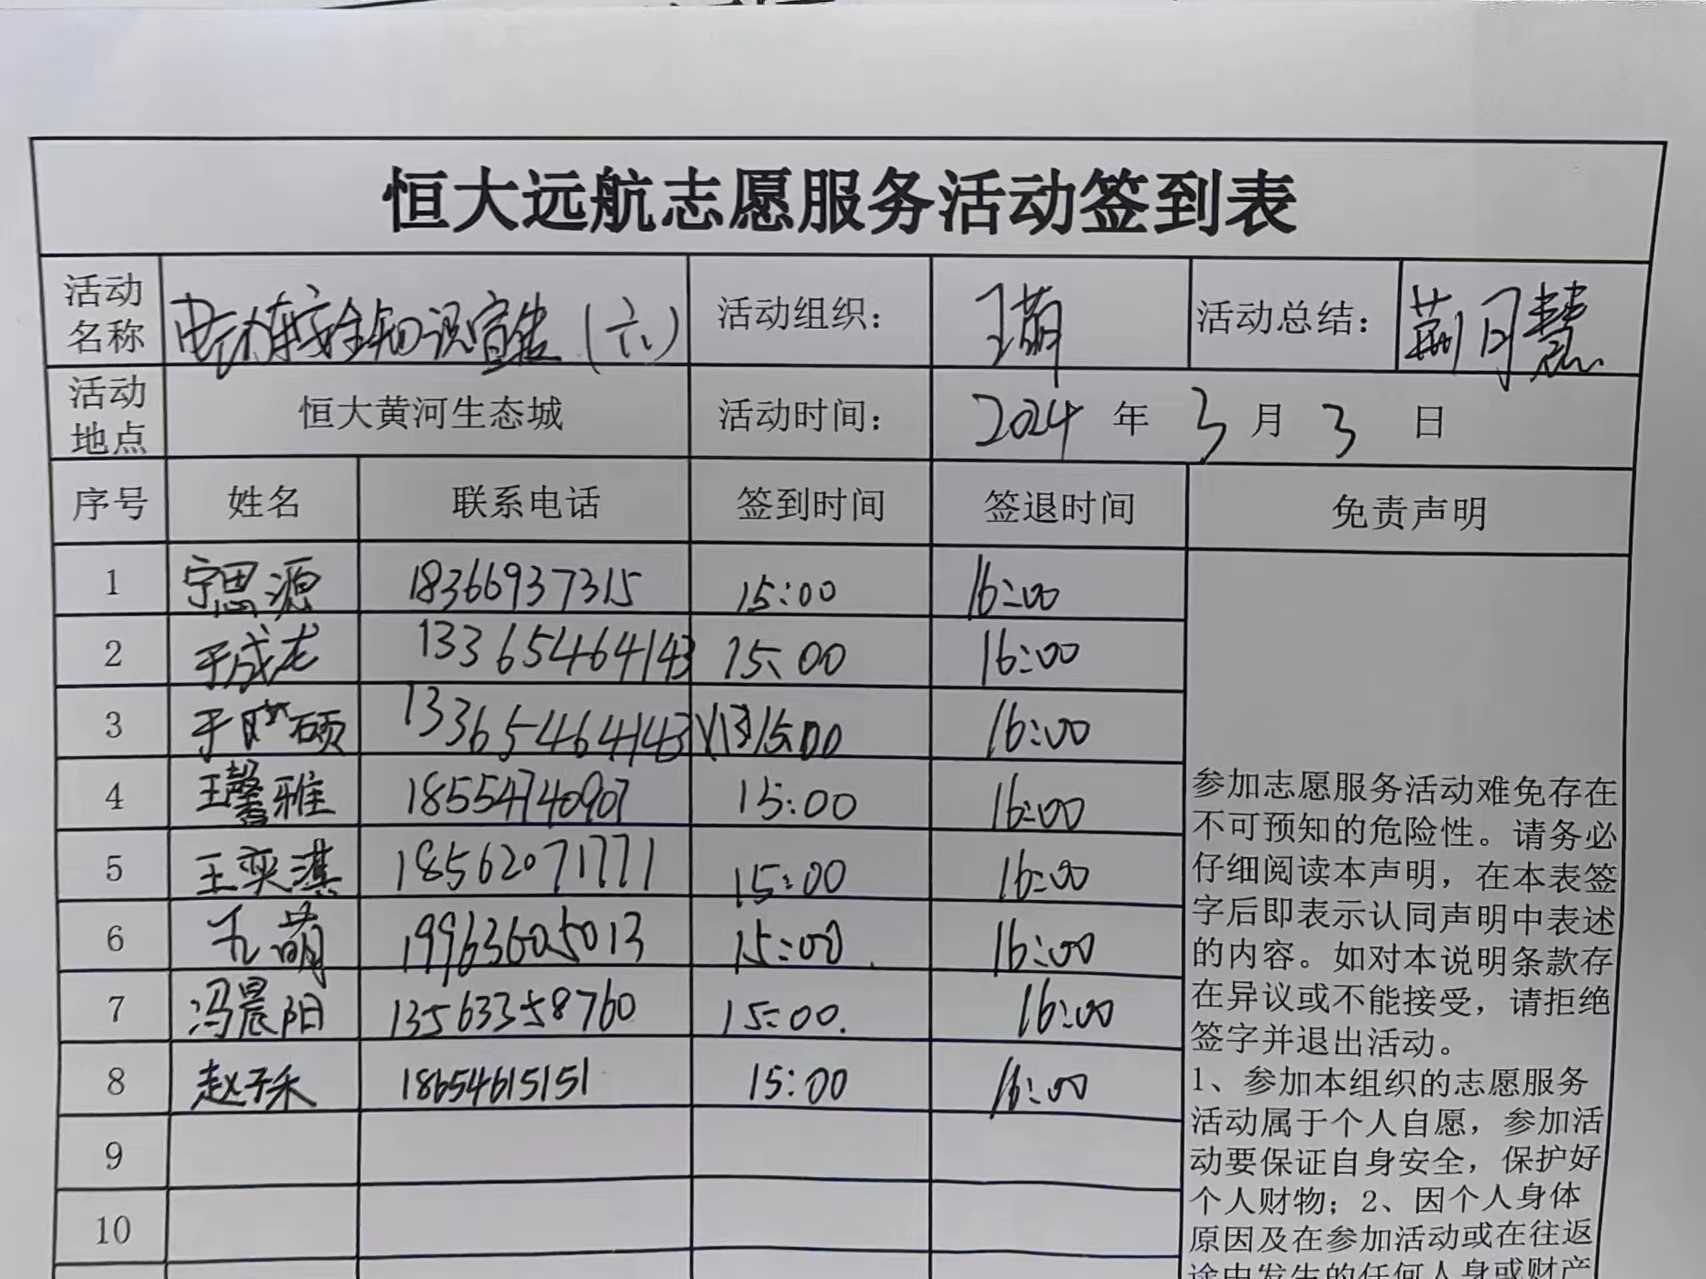 恒大远航志愿服务活动签到表
活动名称 电动车安全知识宣传（六） 活动组织： 王萌 活动总结： 荆月慧
活动地点 恒大黄河生态城 活动时间： 2024 年 3 月 3 日
序号 姓名 联系电话 签到时间 签退时间 免责声明
1 宁思源 18366937315 15:00 16:00
2 于成龙 13365464143 15:00 16:00
3 于 硕 13365464143 15:00 16:00
4 王馨雅 18554740907 15:00 16:00
5 王奕淇 18562071771 15:00 16:00
6 王萌 19963605013 15:00 16:00
7 冯晨阳 13563358760 15:00 16:00
8 赵子禾 18654615151 15:00 16:00
9
10
参加志愿服务活动难免存在
不可预知的危险性。请务必
仔细阅读本声明，在本表签
字后即表示认同声明中表述
的内容。如对本说明条款存
在异议或不能接受，请拒绝
签字并退出活动。
1、参加本组织的志愿服务
活动属于个人自愿，参加活
动要保证自身安全，保护好
个人财物；2、因个人身体
原因及在参加活动或在往返
途中发生的任何人身或财产